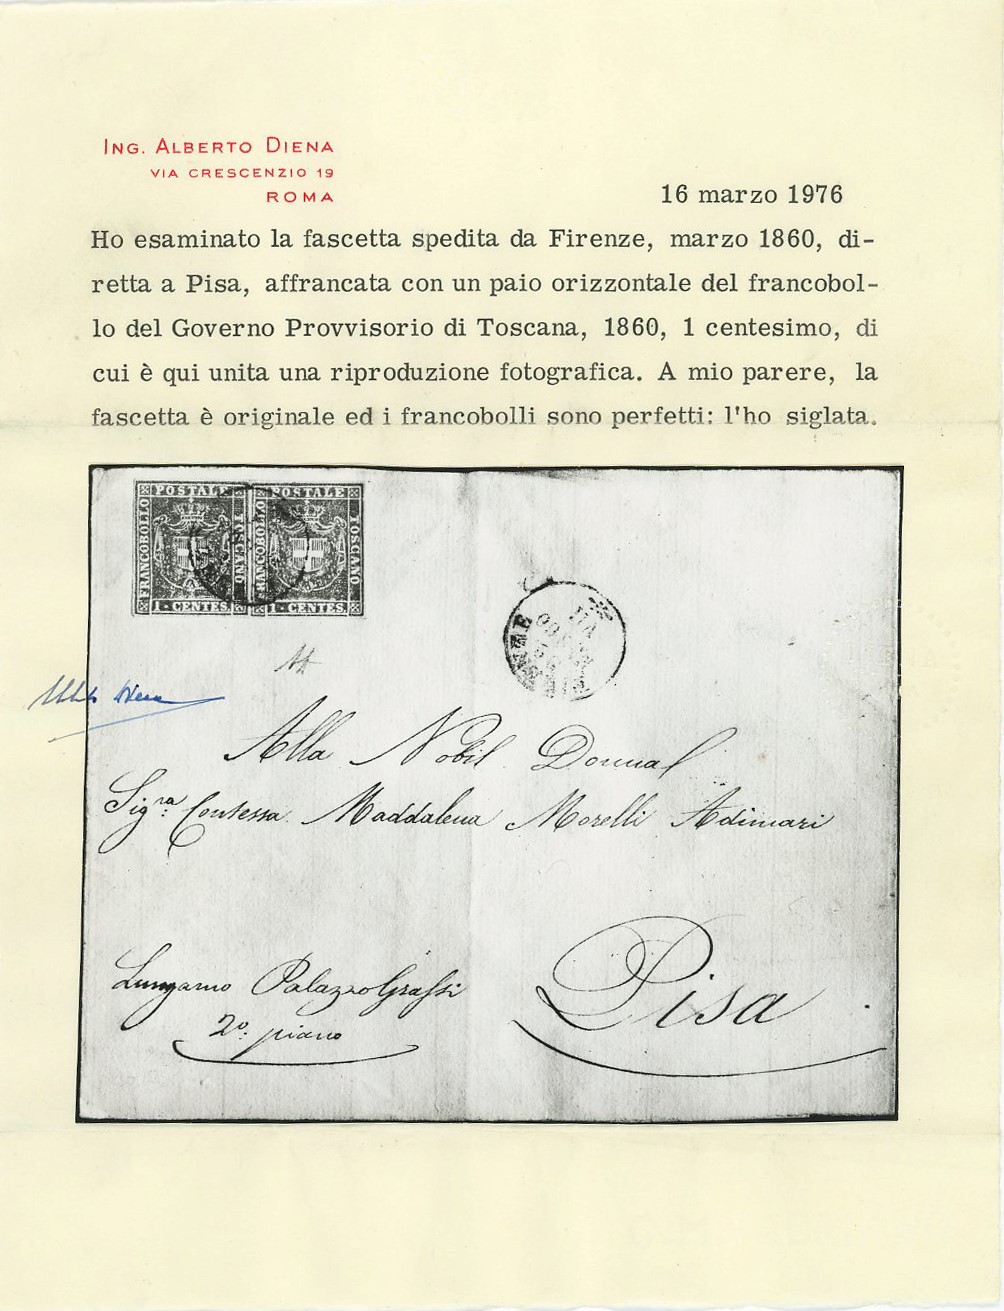 ING. ALBERTO DIENA
VIA CRESCENZIO 19
ROMA
16 marzo 1976
Ho esaminato la fascetta spedita da Firenze, marzo 1860, di-
retta a Pisa, affrancata con un paio orizzontale del francobol-
lo del Governo Provvisorio di Toscana, 1860, 1 centesimo, di
cui è qui unita una riproduzione fotografica. A mio parere, la
fascetta è originale ed i francobolli sono perfetti: l'ho siglata.
FRANCOBOLLO POSTALE TOSCANO
1 - CENTES.
FRANCOBOLLO POSTALE TOSCANO
1 - CENTES.
Alla Nobil Donna
Sig.ra Contessa Maddalena Morelli Adimari
Lungarno Palazzo Grassi
2o. piano
Pisa